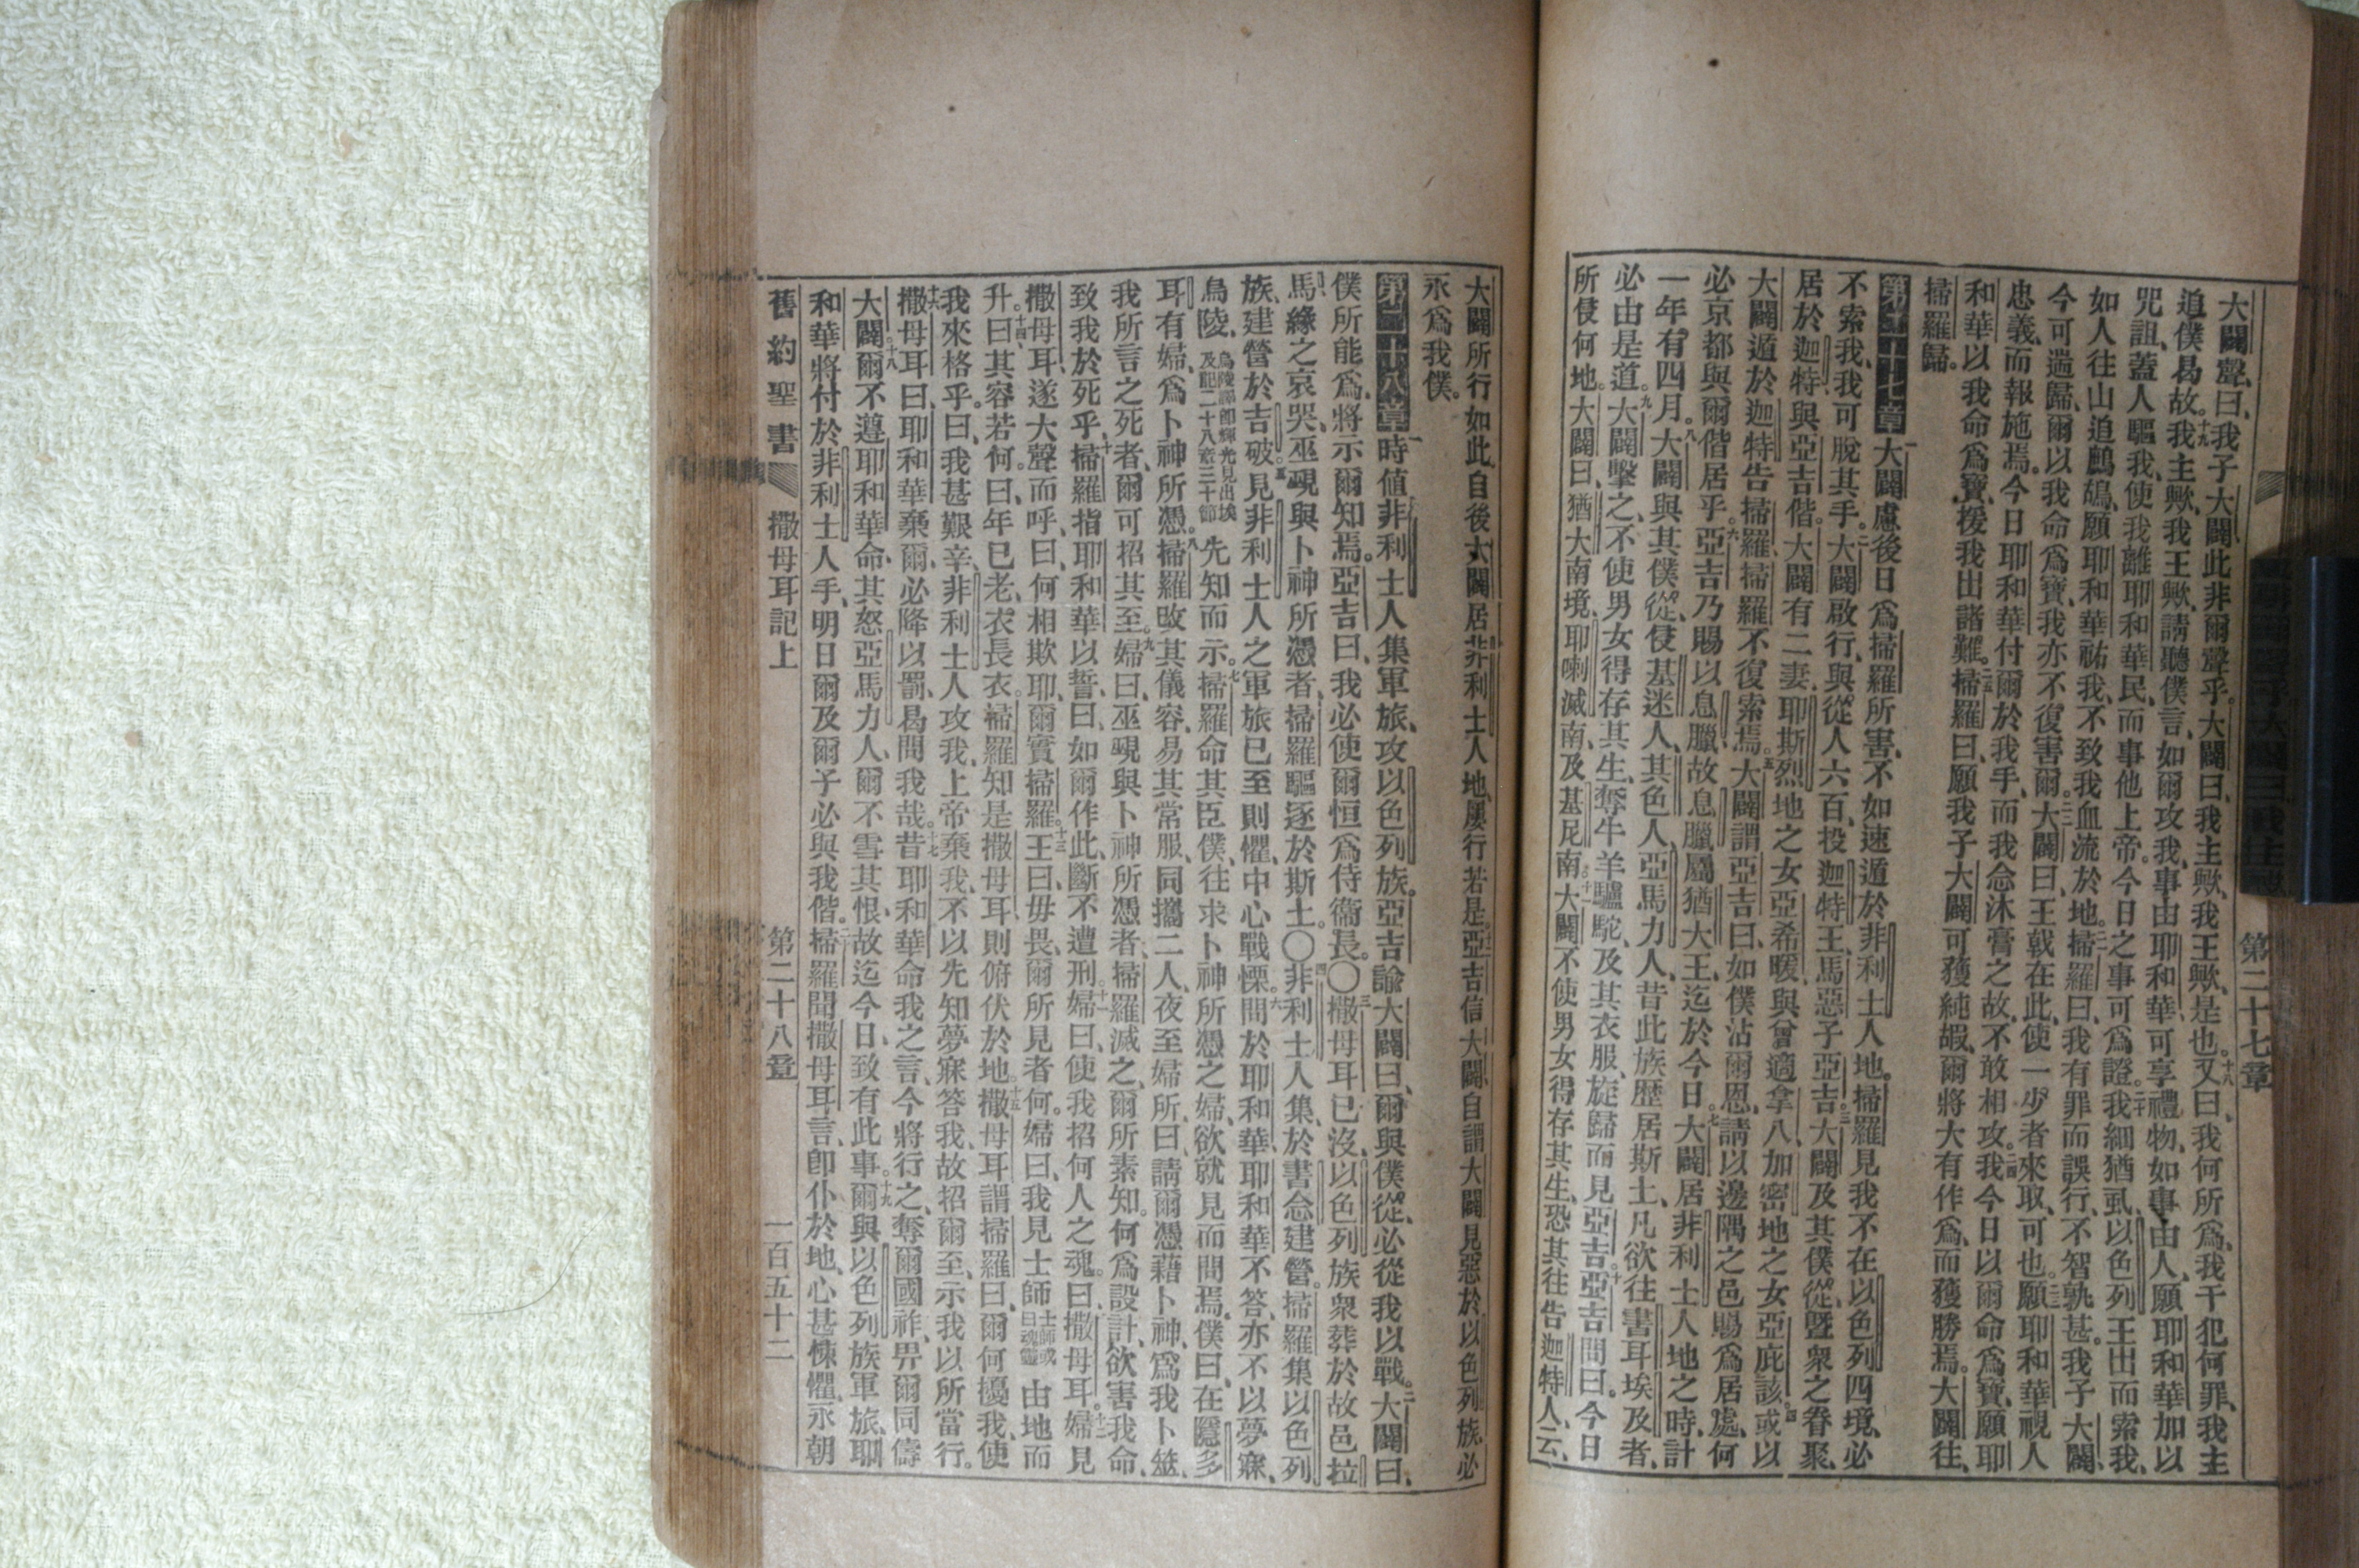 第二十七章
大闢聲、曰、我子大闢此非爾聲乎。大闢曰、我主歟、我王歟、是也。十八又曰、我何所爲、我干犯何罪、我主
追僕曷故。十九我主歟、我王歟、請聽僕言、如爾攻我、事由耶和華、可享禮物、如事由人、願耶和華加以
咒詛、蓋人驅我、使我離耶和華民、而事他上帝。今日之事可爲證。二十我細猶虱、以色列王出而索我、
如人往山追鷓鴣、願耶和華祐我、不致我血流於地。二一掃羅曰、我有罪而誤行、不智孰甚。我子大闢、
今可遄歸、爾以我命爲寶、我亦不復害爾。二二大闢曰、王戟在此、使一少者來取、可也。二三願耶和華視人
忠義、而報施焉。今日耶和華付爾於我手、而我念沐膏之故、不敢相攻。二四我今日以爾命爲寶、願耶
和華以我命爲寶、援我出諸難。二五掃羅曰、願我子大闢可獲純嘏、爾將大有作爲、而獲勝焉。大闢往、
掃羅歸。
第二十七章 一大闢慮後日爲掃羅所害、不如速遁於非利士人地。掃羅見我不在以色列四境、必
不索我、我可脫其手。二大闢啟行、與從人六百、投迦特王、馬惡子亞吉。三大闢及其僕從、曁衆之眷聚、
居於迦特、與亞吉偕。大闢有二妻、耶斯烈地之女亞希暖、與曾適拿八加密地之女亞庇該。四或以
大闢遁於迦特告掃羅、掃羅不復索焉。五大闢謂亞吉曰、如僕沾爾恩、請以邊隅之邑賜爲居處、何
必京都與爾偕居乎。六亞吉乃賜以息臘、故息臘屬猶大王、迄於今日。七大闢居非利士人地之時、計
一年有四月。八大闢與其僕從、侵基迷人、其色人、亞馬力人、昔此族歷居斯土、凡欲往書耳埃及者、
必由是道。九大闢擊之、不使男女得存其生、奪牛羊驢駝、及其衣服、旋歸而見亞吉。十亞吉問曰、今日
所侵何地。大闢曰、猶大南境、耶喇滅南、及基尼南。十一大闢不使男女得存其生、恐其往告迦特人、云、
大闢所行如此、自後大闢居非利士人地、屢行若是。十二亞吉信大闢、自謂大闢見惡於以色列族、必
永爲我僕。
第二十八章 一時值非利士人集軍旅、攻以色列族。亞吉諭大闢曰、爾與僕從、必從我以戰。二大闢曰、
僕所能爲、將示爾知焉。亞吉曰、我必使爾恒爲侍衞長。〇三撒母耳已沒、以色列族衆葬於故邑拉
馬、緣之哀哭、巫覡與卜神所憑者、掃羅驅逐於斯土。〇四非利士人集、於書念建營。掃羅集以色列
族、建營於吉破。五見非利士人之軍旅已至則懼、中心戰慄。六問於耶和華、耶和華不答、亦不以夢寐、
烏陵、烏陵譯卽輝光見出埃及記二十八章三十節先知而示。七掃羅命其臣僕、往求卜神所憑之婦、欲就見而問焉、僕曰、在隱多
耳有婦、爲卜神所憑。八掃羅改其儀容、易其常服、同攜二人、夜至婦所、曰、請爾憑藉卜神、爲我卜筮、
我所言之死者、爾可招其至。九婦曰、巫覡與卜神所憑者、掃羅滅之、爾所素知。何爲設計、欲害我命、
致我於死乎。十掃羅指耶和華以誓、曰、如爾作此、斷不遭刑。十一婦曰、使我招何人之魂。曰、撒母耳。十二婦見
撒母耳、遂大聲而呼、曰、何相欺耶、爾實掃羅。十三王曰、毋畏、爾所見者何。婦曰、我見士師士師或曰魂靈由地而
升。十四曰、其容若何。曰、年已老、衣長衣。掃羅知是撒母耳、則俯伏於地。十五撒母耳謂掃羅曰、爾何擾我、使
我來格乎。曰、我甚艱辛、非利士人攻我、上帝棄我、不以先知夢寐答我、故招爾至、示我以所當行。
十六撒母耳曰、耶和華棄爾、必降以罰、曷問我哉。十七昔耶和華命我之言、今將行之、奪爾國祚、畀爾同儔
大闢。十八爾不遵耶和華命、其怒亞馬力人、爾不雪其恨、故迄今日、致有此事。十九爾與以色列族軍旅、耶
和華將付於非利士人手、明日爾及爾子必與我偕。二十掃羅聞撒母耳言、卽仆於地、心甚悚懼、永朝
舊約聖書 撒母耳記上 第二十八章 一百五十二